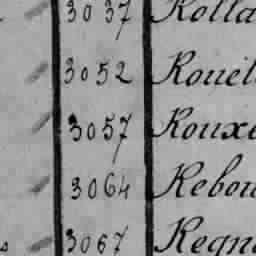 3037 Rolla
3052 Rouil
3057 Rouxe
3064 Rebou
3067 Regn